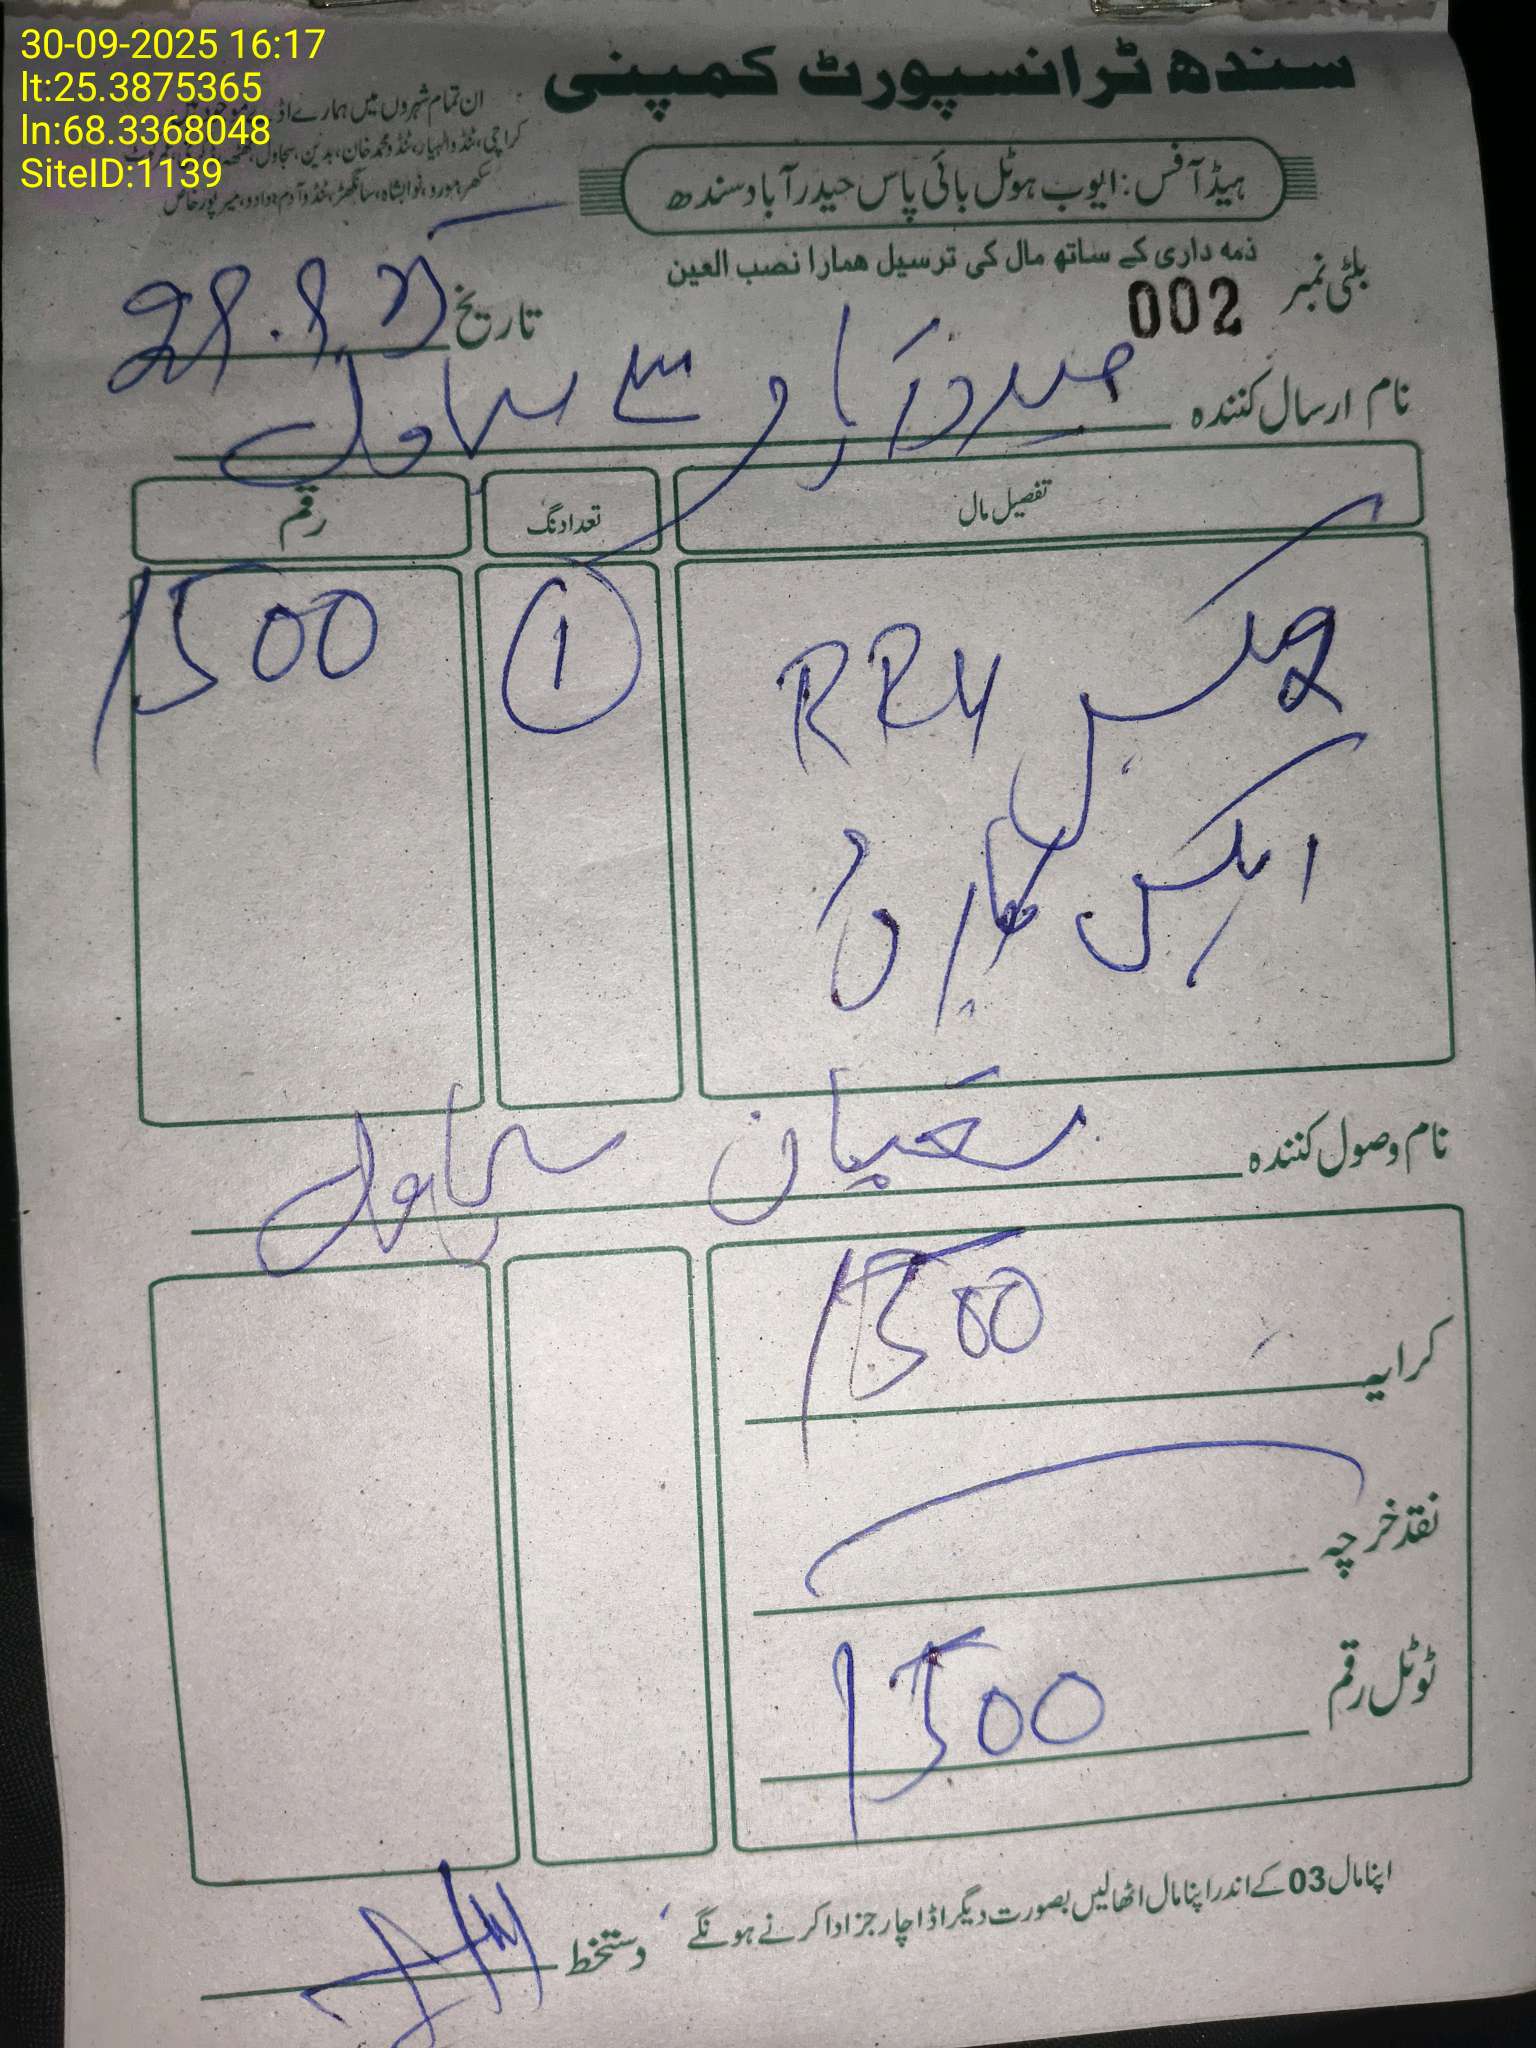 30-09-2025 16:17
lt:25.3875365
ln:68.3368048
SiteID:1139
سندھ ٹرانسپورٹ کمپنی
ان تمام شہروں میں ہمارے اڈے
کراچی، ٹنڈوالہیار، ٹنڈو محمد خان، بدین، سجاول، ٹھٹھہ
سکھر، مورو، نوابشاہ، سانگھڑ، ٹنڈو آدم، دادو، میرپورخاص
ہیڈ آفس: ایوب ہوٹل بائی پاس حیدرآباد سندھ
ذمہ داری کے ساتھ مال کی ترسیل ھمارا نصب العین
بلٹی نمبر 002
تاریخ 29.9.25
نام ارسال کنندہ حیدرآباد سے سجاول
تفصیل مال تعداد نگ رقم
RRU 1 1500
ایکس
نام وصول کنندہ سجاول
کرایہ 1500
نقد خرچہ
ٹوٹل رقم 1500
اپنا مال 03 کے اندر اپنا مال اٹھالیں بصورت دیگر اڈا چارجز ادا کرنے ہونگے
دستخط